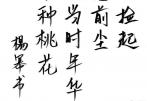 拾起
前尘
当时年华
种桃花
杨幂书